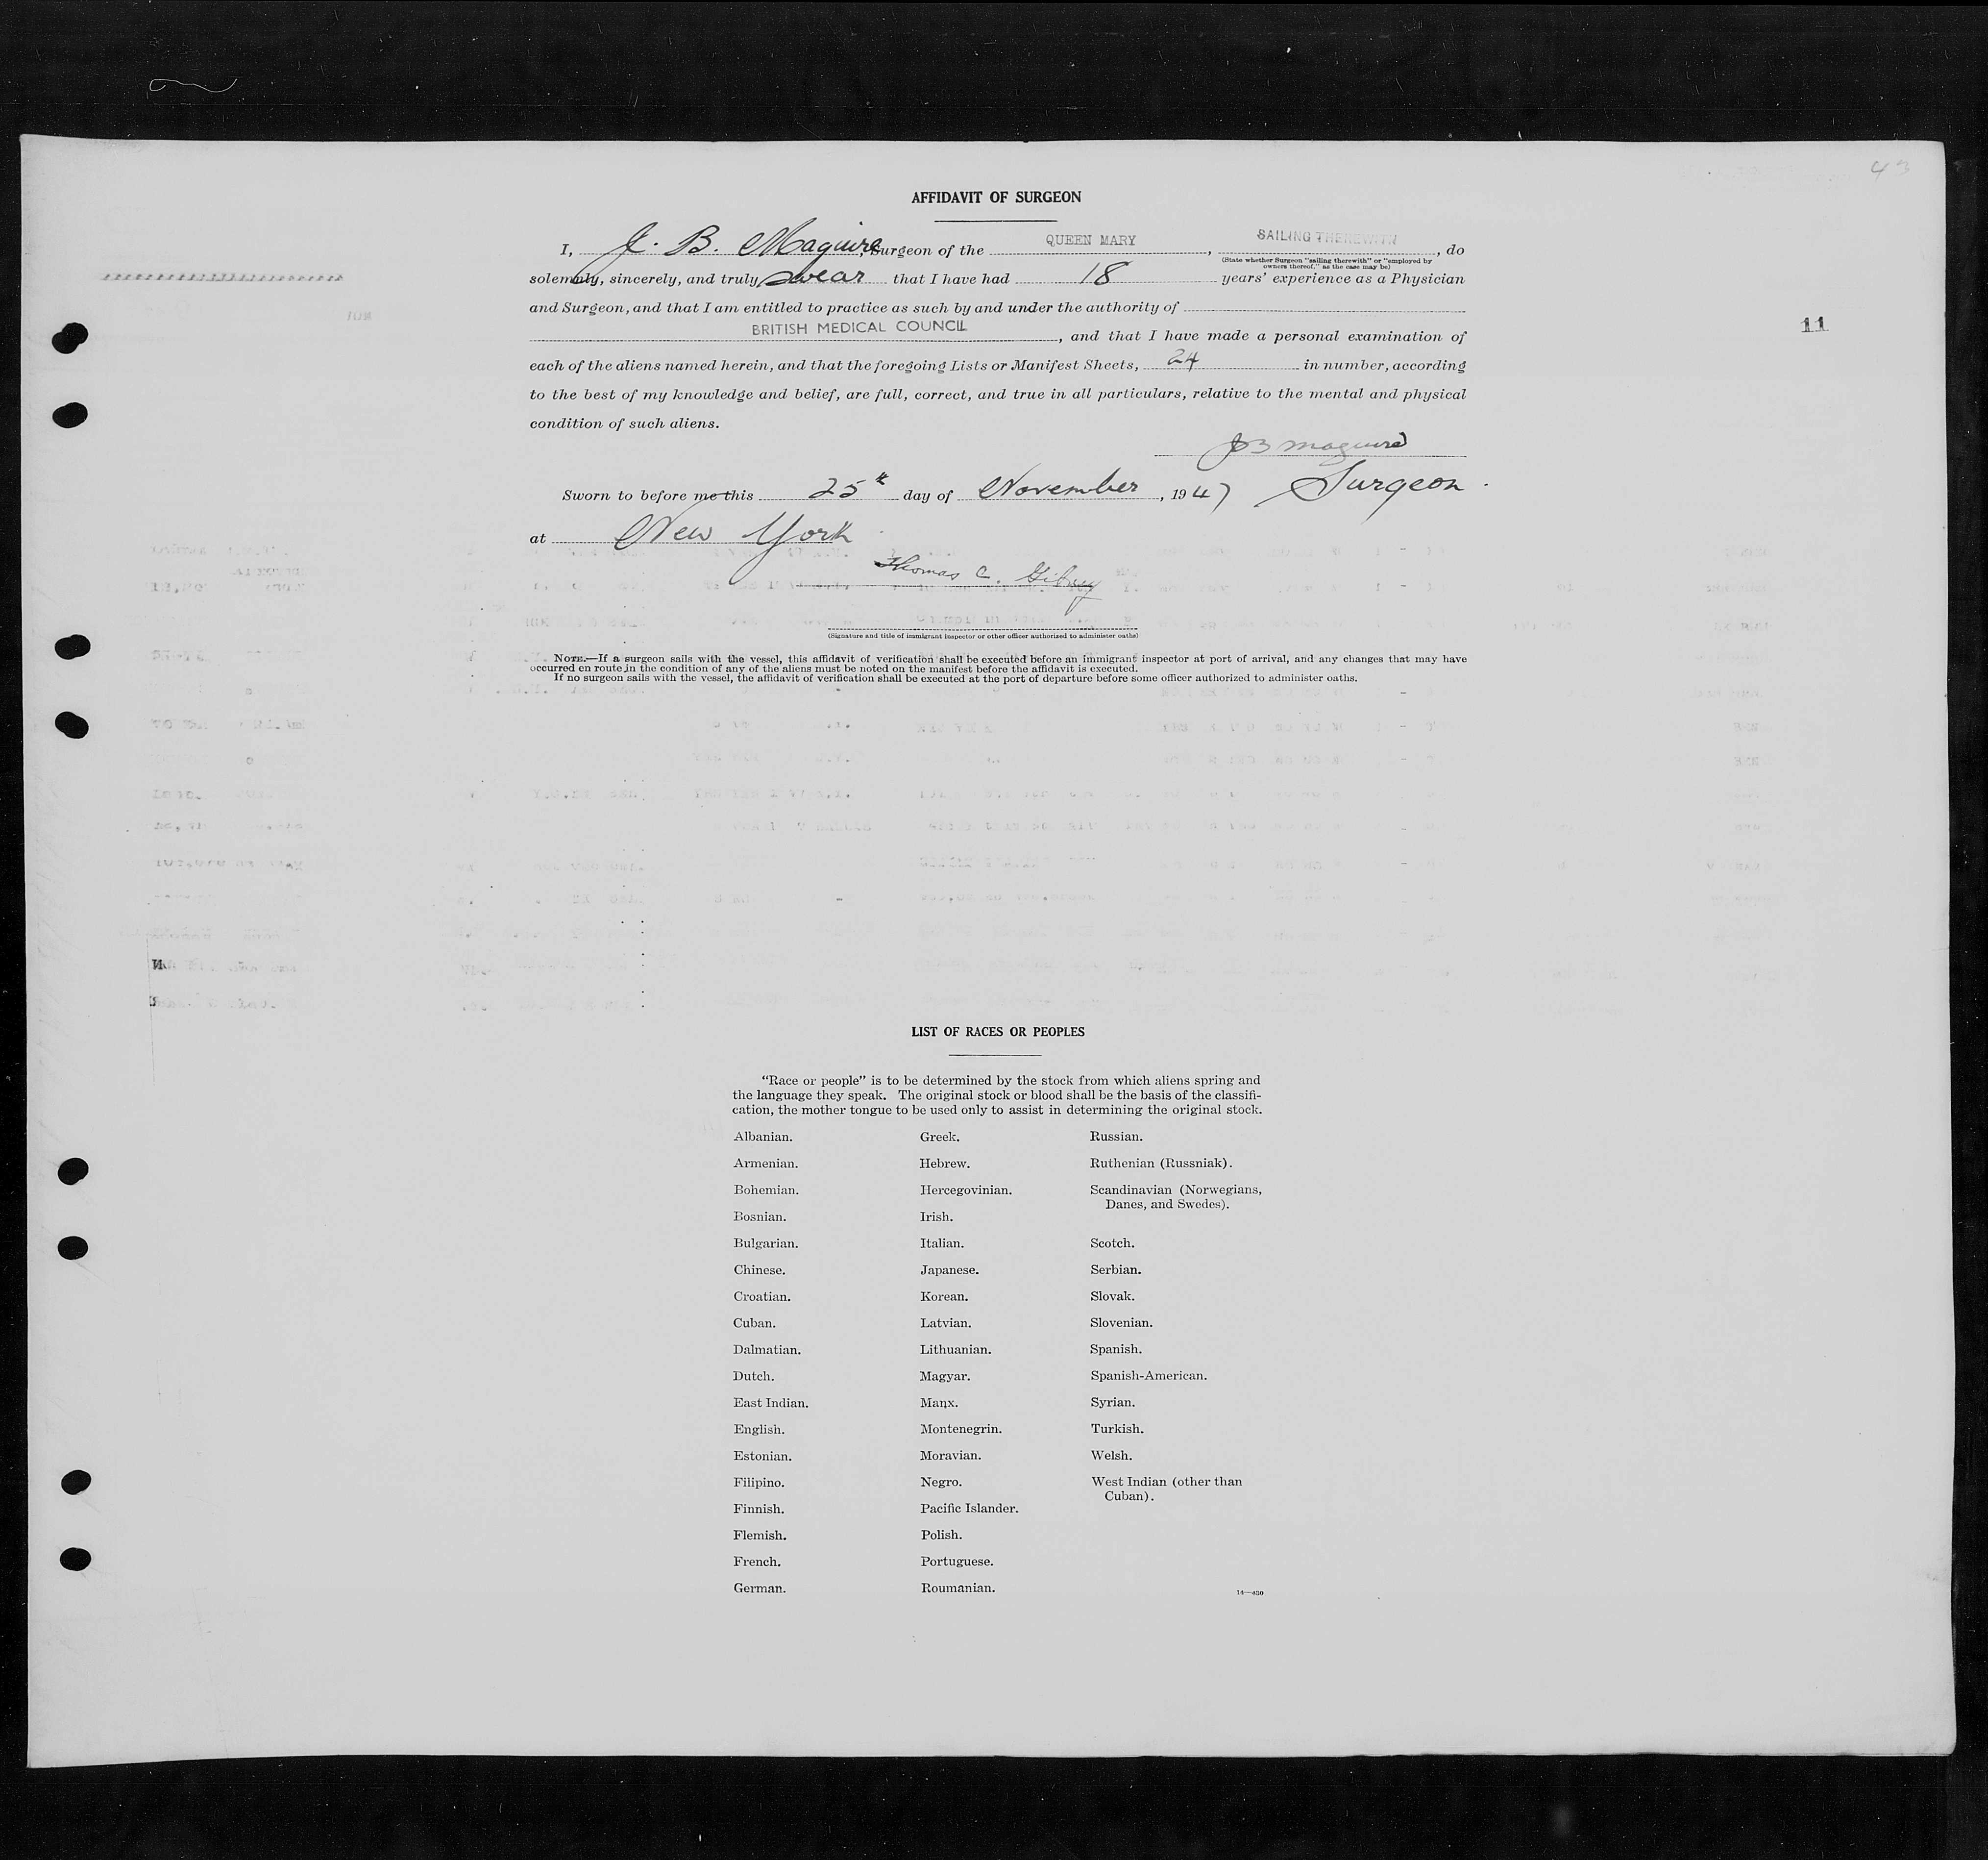 43
AFFIDAVIT OF SURGEON
I, J. B. Maguire, Surgeon of the QUEEN MARY, SAILING THEREWITH, do
(State whether Surgeon "sailing therewith" or "employed by
owners thereof," as the case may be)
solemnly, sincerely, and truly swear that I have had 18 years' experience as a Physician
and Surgeon, and that I am entitled to practice as such by and under the authority of
BRITISH MEDICAL COUNCIL, and that I have made a personal examination of
11
each of the aliens named herein, and that the foregoing Lists or Manifest Sheets, 24 in number, according
to the best of my knowledge and belief, are full, correct, and true in all particulars, relative to the mental and physical
condition of such aliens.
J B Maguire
Sworn to before me this 25th day of November, 1947 Surgeon.
at New York
Thomas C.
(Signature and title of immigrant inspector or other officer authorized to administer oaths)
NOTE.—If a surgeon sails with the vessel, this affidavit of verification shall be executed before an immigrant inspector at port of arrival, and any changes that may have
occurred en route in the condition of any of the aliens must be noted on the manifest before the affidavit is executed.
If no surgeon sails with the vessel, the affidavit of verification shall be executed at the port of departure before some officer authorized to administer oaths.
LIST OF RACES OR PEOPLES
"Race or people" is to be determined by the stock from which aliens spring and
the language they speak. The original stock or blood shall be the basis of the classifi-
cation, the mother tongue to be used only to assist in determining the original stock.
Albanian.
Armenian.
Bohemian.
Bosnian.
Bulgarian.
Chinese.
Croatian.
Cuban.
Dalmatian.
Dutch.
East Indian.
English.
Estonian.
Filipino.
Finnish.
Flemish.
French.
German.
Greek.
Hebrew.
Hercegovinian.
Irish.
Italian.
Japanese.
Korean.
Latvian.
Lithuanian.
Magyar.
Manx.
Montenegrin.
Moravian.
Negro.
Pacific Islander.
Polish.
Portuguese.
Roumanian.
Russian.
Ruthenian (Russniak).
Scandinavian (Norwegians,
Danes, and Swedes).
Scotch.
Serbian.
Slovak.
Slovenian.
Spanish.
Spanish-American.
Syrian.
Turkish.
Welsh.
West Indian (other than
Cuban).
14—430